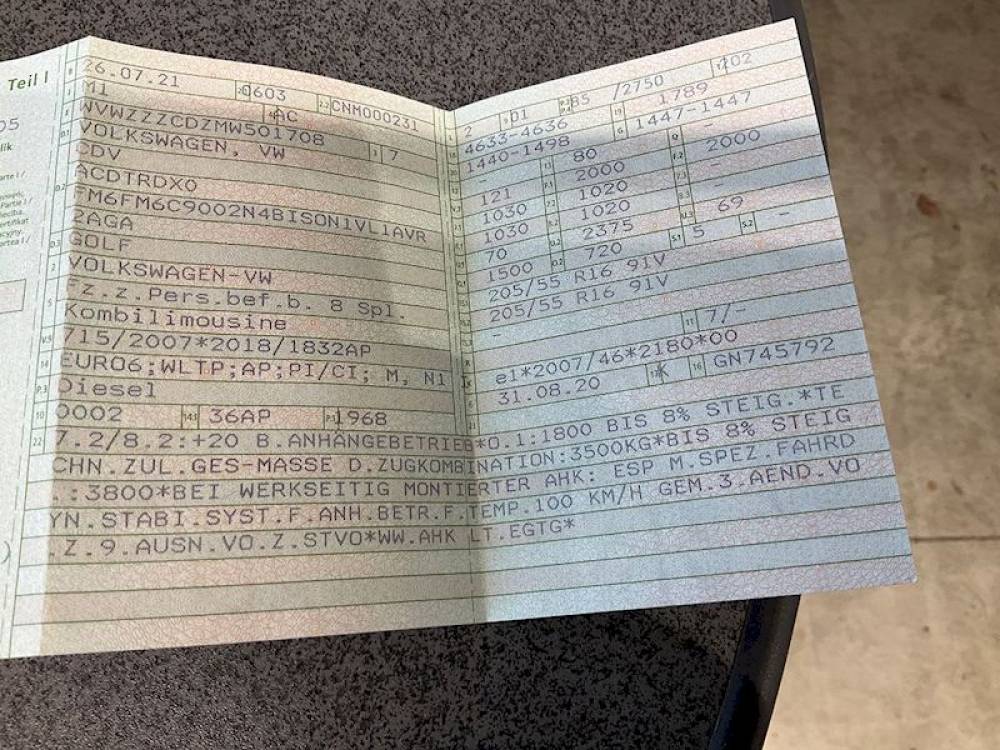 Teil I
26.07.21 0603 2.2 CNM000231
M1 4 AC
WVWZZZCDZMW501708
VOLKSWAGEN, VW 3 7
CDV
ACDTRDX0
FM6FM6C9002N4BISON1VL1AVR
2AGA
GOLF
VOLKSWAGEN-VW
Fz.z.Pers.bef.b. 8 Spl.
Kombilimousine
715/2007*2018/1832AP
EURO6;WLTP;AP;PI/CI; M, N1
Diesel
0002 14.1 36AP P.1 1968
2 01 85 /2750 202
4633-4636 1789
1440-1498 G 1447-1447
- 80 -
121 2000 2000
1030 1020 -
1030 1020 -
70 2375 69
1500 720 S.1 5 S.2 -
205/55 R16 91V
205/55 R16 91V
-
11 7/-
e1*2007/46*2180*00
31.08.20 K 16 GN745792
22 7.2/8.2:+20 B.ANHÄNGEBETRIEB*O.1:1800 BIS 8% STEIG.*TE
CHN.ZUL.GES-MASSE D.ZUGKOMBINATION:3500KG*BIS 8% STEIG
.:3800*BEI WERKSEITIG MONTIERTER AHK: ESP M.SPEZ.FAHRD
YN.STABI.SYST.F.ANH.BETR.F.TEMP.100 KM/H GEM.3.AEND.VO
.Z.9.AUSN.VO.Z.STVO*WW.AHK LT.EGTG*